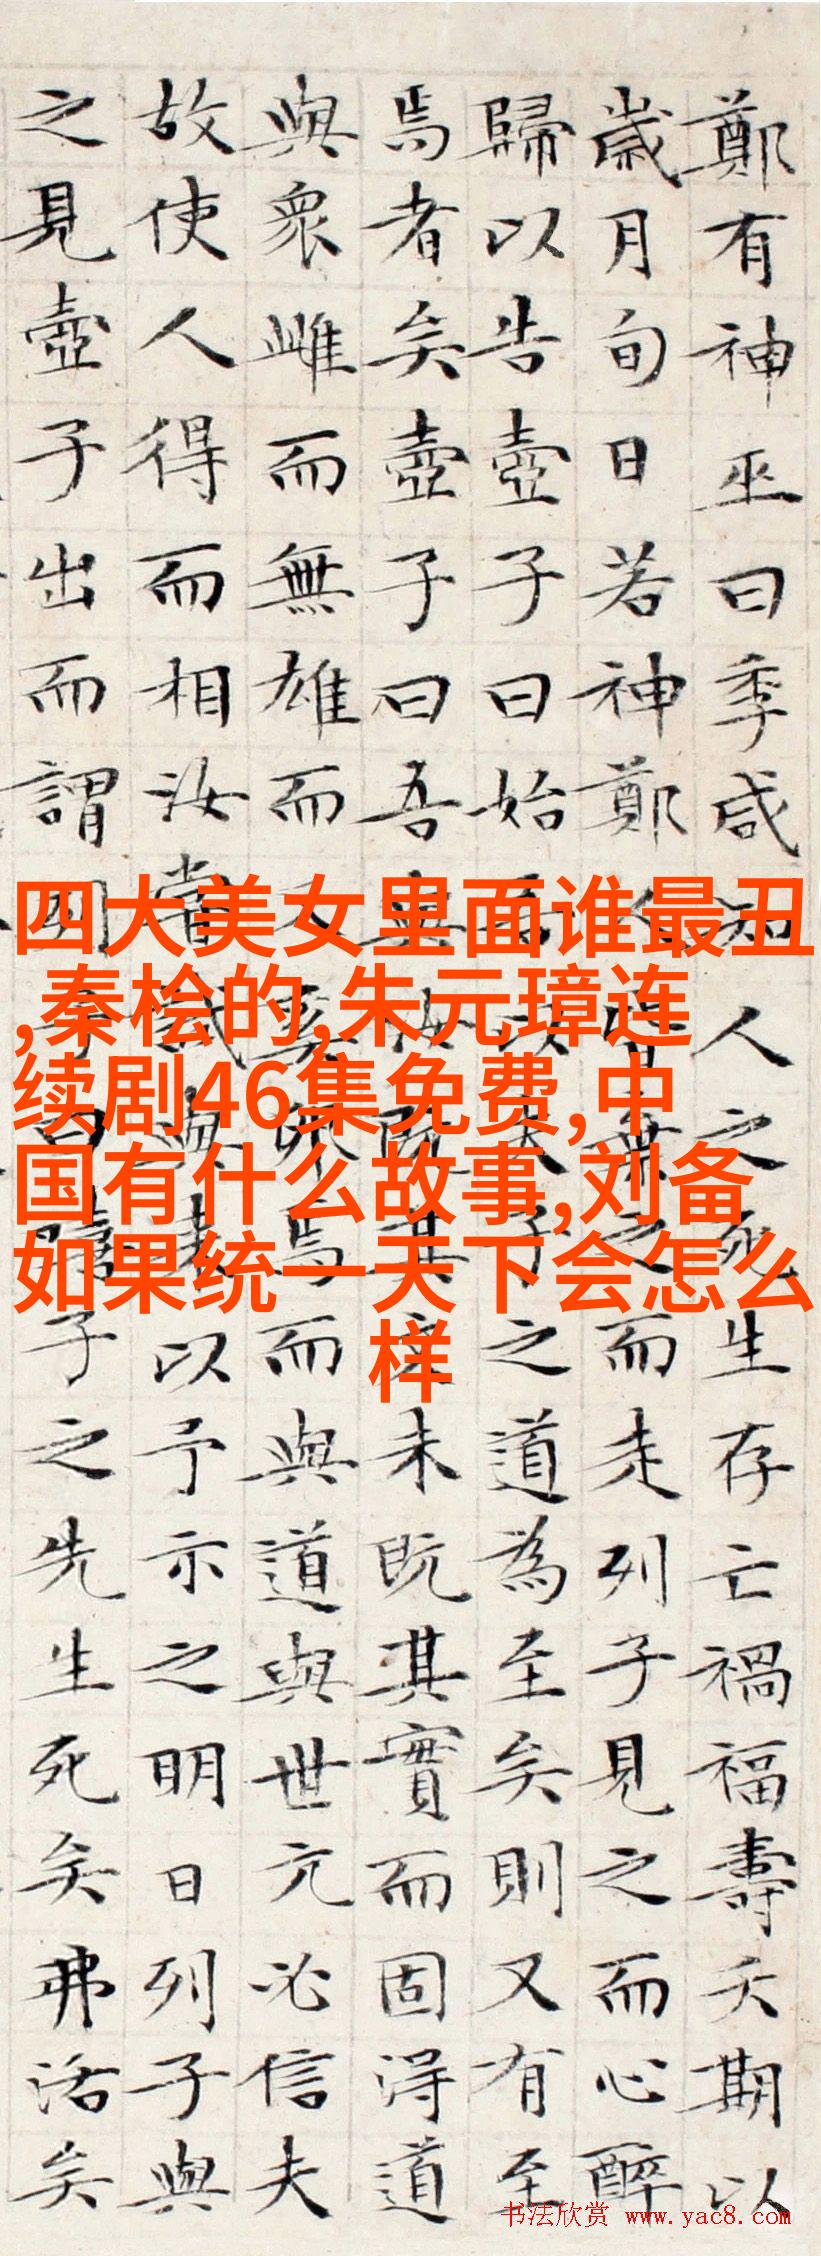 鄭有神巫曰季咸知人之死生存亡禍福壽夭期以
歲月旬日若神鄭人皆棄之而走列子見之而心醉
歸以告壺子曰始吾以夫子之道為至矣則又有至
焉者矣壺子曰吾與汝既其文未既其實而固得道
與眾雌而無雄而又奚卵焉而與道與世亢必信夫
故使人得而相汝嘗試與來以予示之明日列子與
之見壺子出而謂列子曰嘻子之先生死矣弗活矣
四大美女里面谁最丑
,秦桧的,朱元璋连
续剧46集免费,中
国有什么故事,刘备
如果统一天下会怎么
样
书法欣赏 www.yac8.com